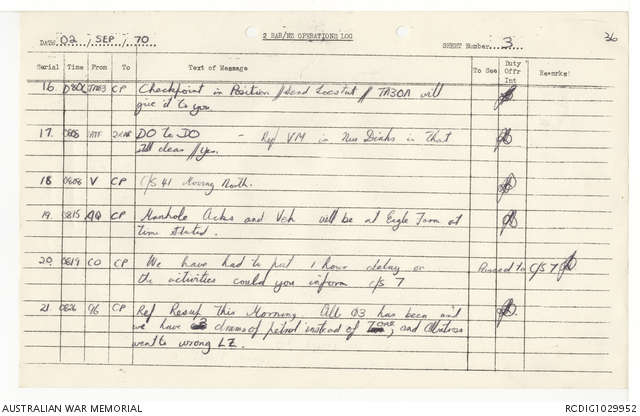 2 RAR/NZ OPERATIONS LOG
36
DATE: 02 / SEP / 70
SHEET Number: 3
Serial Time From To Text of Message To See Duty Offr Int Remarks:
16. CP Checkpoint in Position // Send Locstat // TA30A will
give'd to you.
17. 0805 DO to DO - Ref VM in Nui Dinhs is that
still clear // Yes.
18 0808 V CP C/S 41 Moving North.
19. 0815 CP Manhole Acks and Veh will be at Eagle Farm at
time stated.
20 0819 CO CP We have had to put 1 hour delay on Passed to C/S 7
the activities could you inform C/S 7
21. 0826 96 CP Ref Resup This Morning. All 03 has been and
we have 3 drums of petrol instead of one, and Albatross
went to wrong LZ.
AUSTRALIAN WAR MEMORIAL
RCDIG1029952